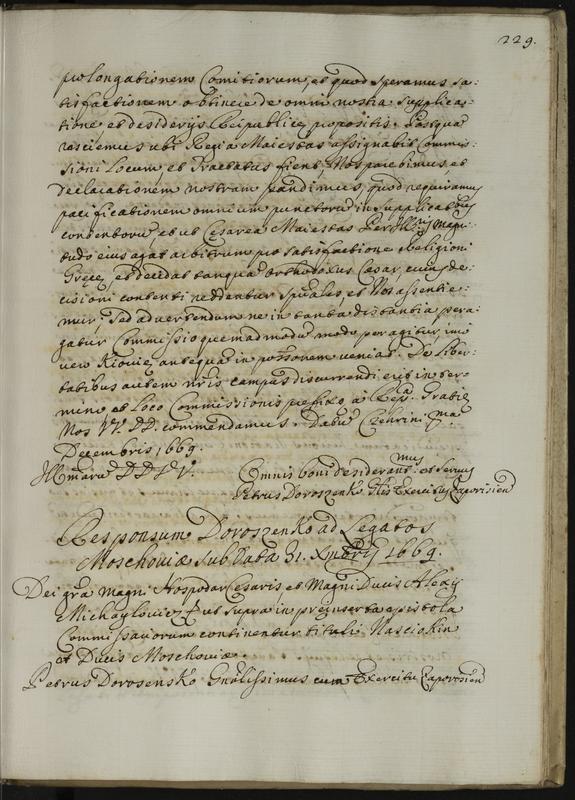 229.
prolongationem Comitiorum, et quod speramus sa:
tisfactionem obtinere de omni nostra supplica:
tione et desiderijs Reipublicę propositis. Postquã
resciemus ubi Regia Maiestas assignabit Commis:
sioni Locum, et Tractatus fient, Nos parebimus, et
Declarationem nostram pandimus, quod requiramus
pacificationem omnium punctorũ in supplicationibus
contentorũ, et ut Cesarea Maiestas Per Illris magni
tudo eius agat arbitrum pro satisfactione Religioni
Gręcę, et decidat tanquã orthodoxus Cæsar, cuius de:
cisioni contenti reddentur spũales, et Nos assentie:
mur, sed advertendum ne in tanta distantia pera:
gatur Commissio quemadmodũ modo peragitur, imò
vero Kioviæ antequã in possorem veniat. De Liber:
tatibus autem nris campus discurrendi erit in ter:
mino et Loco Commissionis prefixo, a Rẽp. Gratię
Nos VV. DD. commendamus. Datũ Czehrini 7ma
Decembris 1669.
Illmarũ DD VV.
Omnis boni desiderantmus et servus
Petrus Doroszenko Htis Exercitus Zaporisien
Responsum Doroszenko ad Legatos
Moschoviæ sub Data 31. Xmbris 1669.
Dei grã magni Hospodar Cesaris et Magni Ducis Alexij
Michaylowicz ut supra in preinserta epistola
Commissariorum continentur tituli Nasciokin
et Ducis Moschoviæ.
Petrus Dorosensko Gnãlissimus cum Exercitu Zaporosien